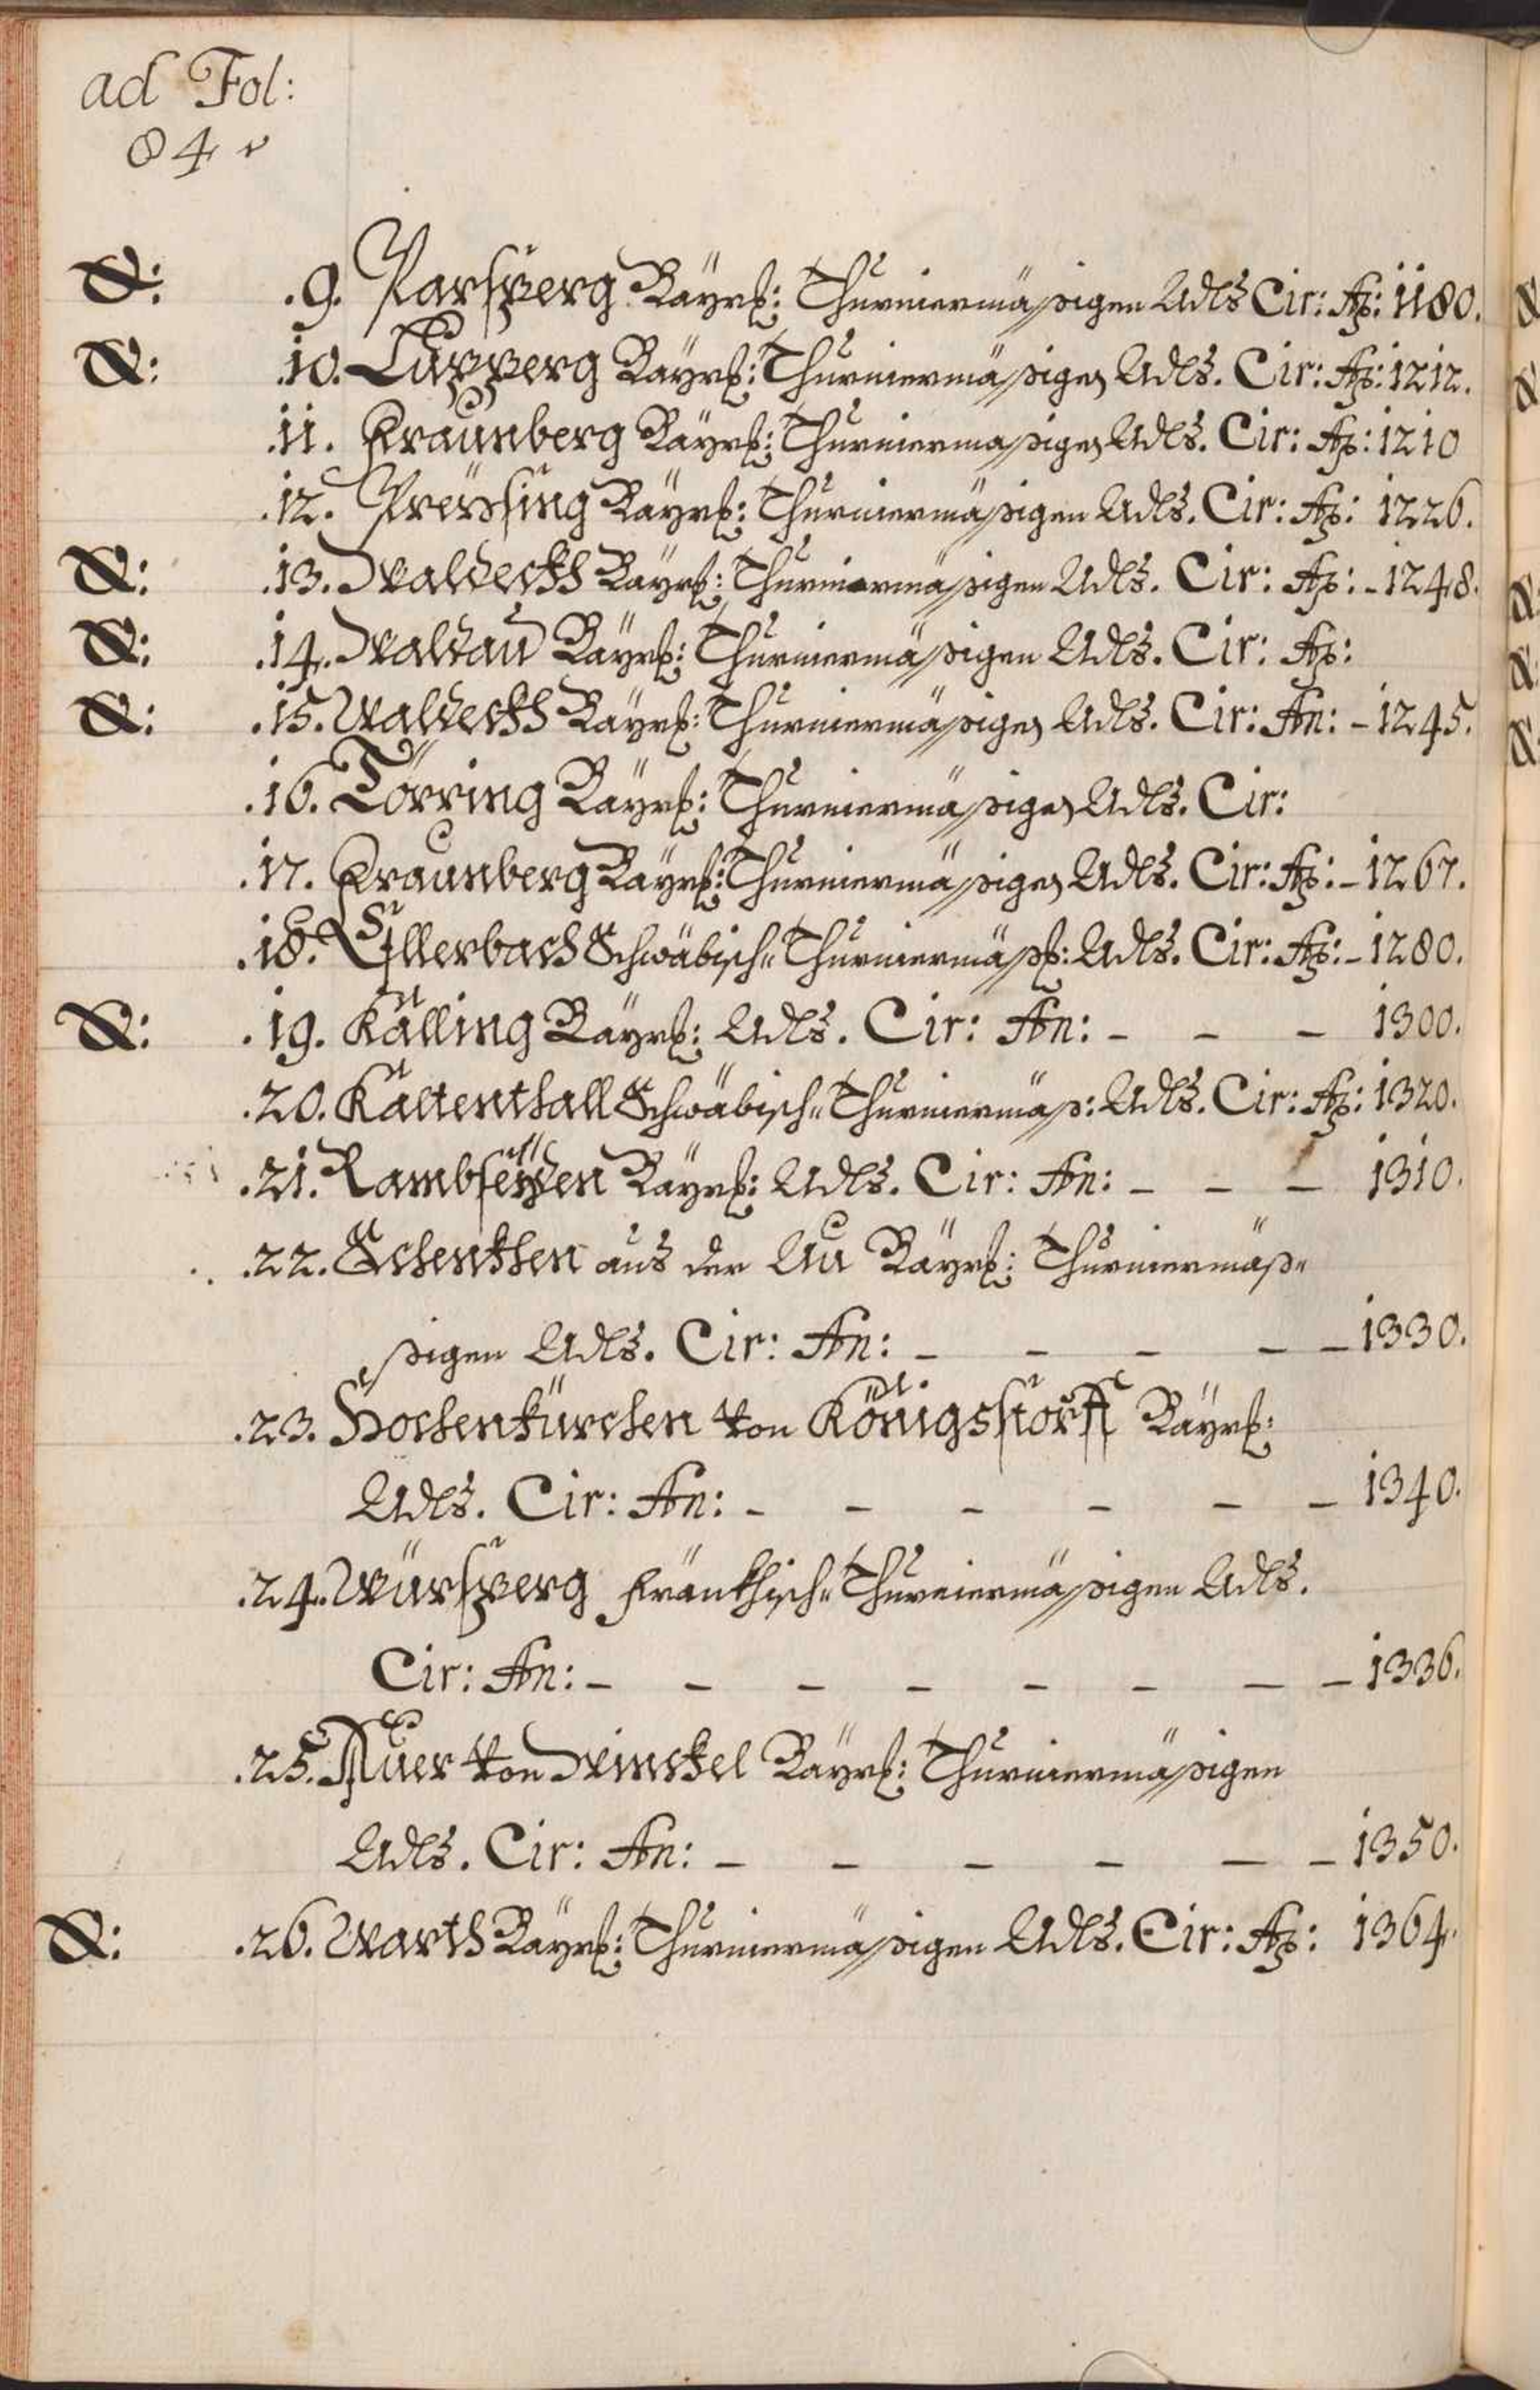 ad Fol:
84 v
&: .9. Parsperg Bäyrl: Thurniermässigen Adls Cir: Aō: 1180.
&: .10. Lupperg Bäyrl: Thurniermässigen Adls. Cir: Aō: 1212.
.11. Fraunberg Bäyrl: Thurniermässigen Adls. Cir: Aō: 1210
.12. Preysing Bäyrl: Thurniermässigen Adls. Cir: Aō: 1226.
&: .13. Waldeckh Bäyrl: Thurniermässigen Adls. Cir: Aō: - 1248.
&: .14. Waldau Bäyrl: Thurniermässigen Adls. Cir: Aō:
&: .15. Waldeckh Bäyrl: Thurniermässigen Adls. Cir: An: - 1245.
.16. Törring Bäyrl: Thurniermässigen Adls. Cir:
.17. Fraunberg Bäyrl: Thurniermässigen Adls. Cir: Aō: - 1267.
.18. Ellerbach Schwäbisch= Thurniermässl: Adls. Cir: Aō: - 1280.
&: .19. Källing Bäyrl: Adls. Cir: An: - - - 1300.
.20. Kaltenthall Schwäbisch= Thurniermäss: Adls. Cir: Aō: 1320.
.21. Rambseyden Bäyrl: Adls. Cir: An: - - - 1310.
.22. Schenkhen aus der Au Bäyrl: Thurniermäs=
sigen Adls. Cir: An: - - - - - 1330.
.23. Hochenkürchen von Königsstorff Bäyrl:
Adls. Cir: An: - - - - - - 1340.
.24. Würsperg Fränkhisch= Thurniermässigen Adls.
Cir: An: - - - - - - - - 1336.
.25. Auer von Winckel Bäyrl: Thurniermässigen
Adls. Cir: An: - - - - - - 1350.
&: .26. Warth Bäyrl: Thurniermässigen Adls. Cir: Aō: 1364.